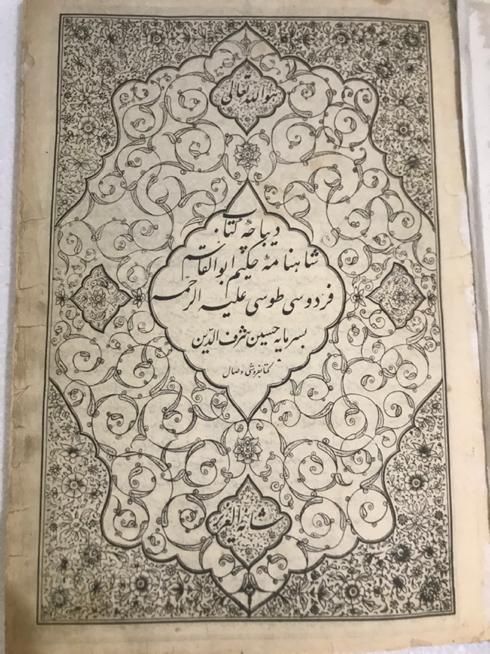 هو الله تعالی
دیباچهٔ کتاب
شاهنامهٔ حکیم ابوالقاسم
فردوسی طوسی علیه الرحمه
بسرمایه حسین شرف الدین
کتابفروشی وصال